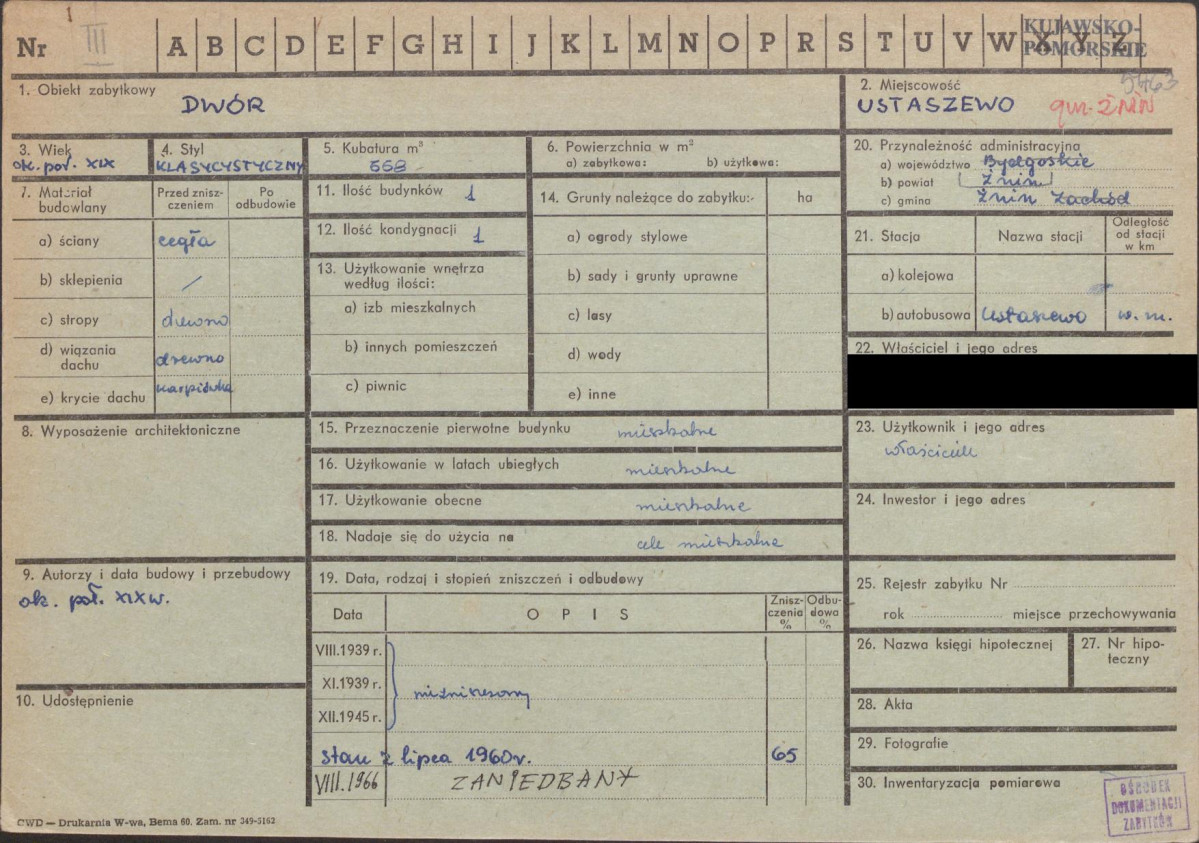 Nr III A B C D E F G H I J K L M N O P R S T U V W X Y Z
KUJAWSKO-
POMORSKIE
5463
1. Obiekt zabytkowy
DWÓR
2. Miejscowość
USTASZEWO gm. ŻNIN
3. Wiek
ok. poł. XIX
4. Styl
KLASYCYSTYCZNY
5. Kubatura m³
568
6. Powierzchnia w m²
a) zabytkowa: b) użytkowa:
20. Przynależność administracyjna
a) województwo Bydgoskie
b) powiat Żnin
c) gmina Żnin Zachód
7. Materiał budowlany
Przed zniszczeniem
Po odbudowie
a) ściany cegła
b) sklepienia /
c) stropy drewno
d) wiązania dachu drewno
e) krycie dachu karpiówka
11. Ilość budynków 1
12. Ilość kondygnacji 1
13. Użytkowanie wnętrza
według ilości:
a) izb mieszkalnych
b) innych pomieszczeń
c) piwnic
14. Grunty należące do zabytku: ha
a) ogrody stylowe
b) sady i grunty uprawne
c) lasy
d) wody
e) inne
21. Stacja Nazwa stacji
Odległość
od stacji
w km
a) kolejowa
b) autobusowa Ustaszewo w. m.
22. Właściciel i jego adres
8. Wyposażenie architektoniczne
15. Przeznaczenie pierwotne budynku mieszkalne
16. Użytkowanie w latach ubiegłych mieszkalne
17. Użytkowanie obecne mieszkalne
18. Nadaje się do użycia na cele mieszkalne
23. Użytkownik i jego adres
właściciele
24. Inwestor i jego adres
9. Autorzy i data budowy i przebudowy
ok. poł. XIX w.
10. Udostępnienie
19. Data, rodzaj i stopień zniszczeń i odbudowy
Data OPIS
Znisz-
czenia
%
Odbu-
dowa
%
VIII.1939 r.
XI.1939 r.
XII.1945 r.
stan z lipca 1960 r. 65
VIII.1966 ZANIEDBANY
25. Rejestr zabytku Nr
rok miejsce przechowywania
26. Nazwa księgi hipotecznej
27. Nr hipo-
teczny
28. Akta
29. Fotografie
30. Inwentaryzacja pomiarowa
OŚRODEK
DOKUMENTACJI
ZABYTKÓW
CWD — Drukarnia W-wa, Bema 60. Zam. nr 349-5162